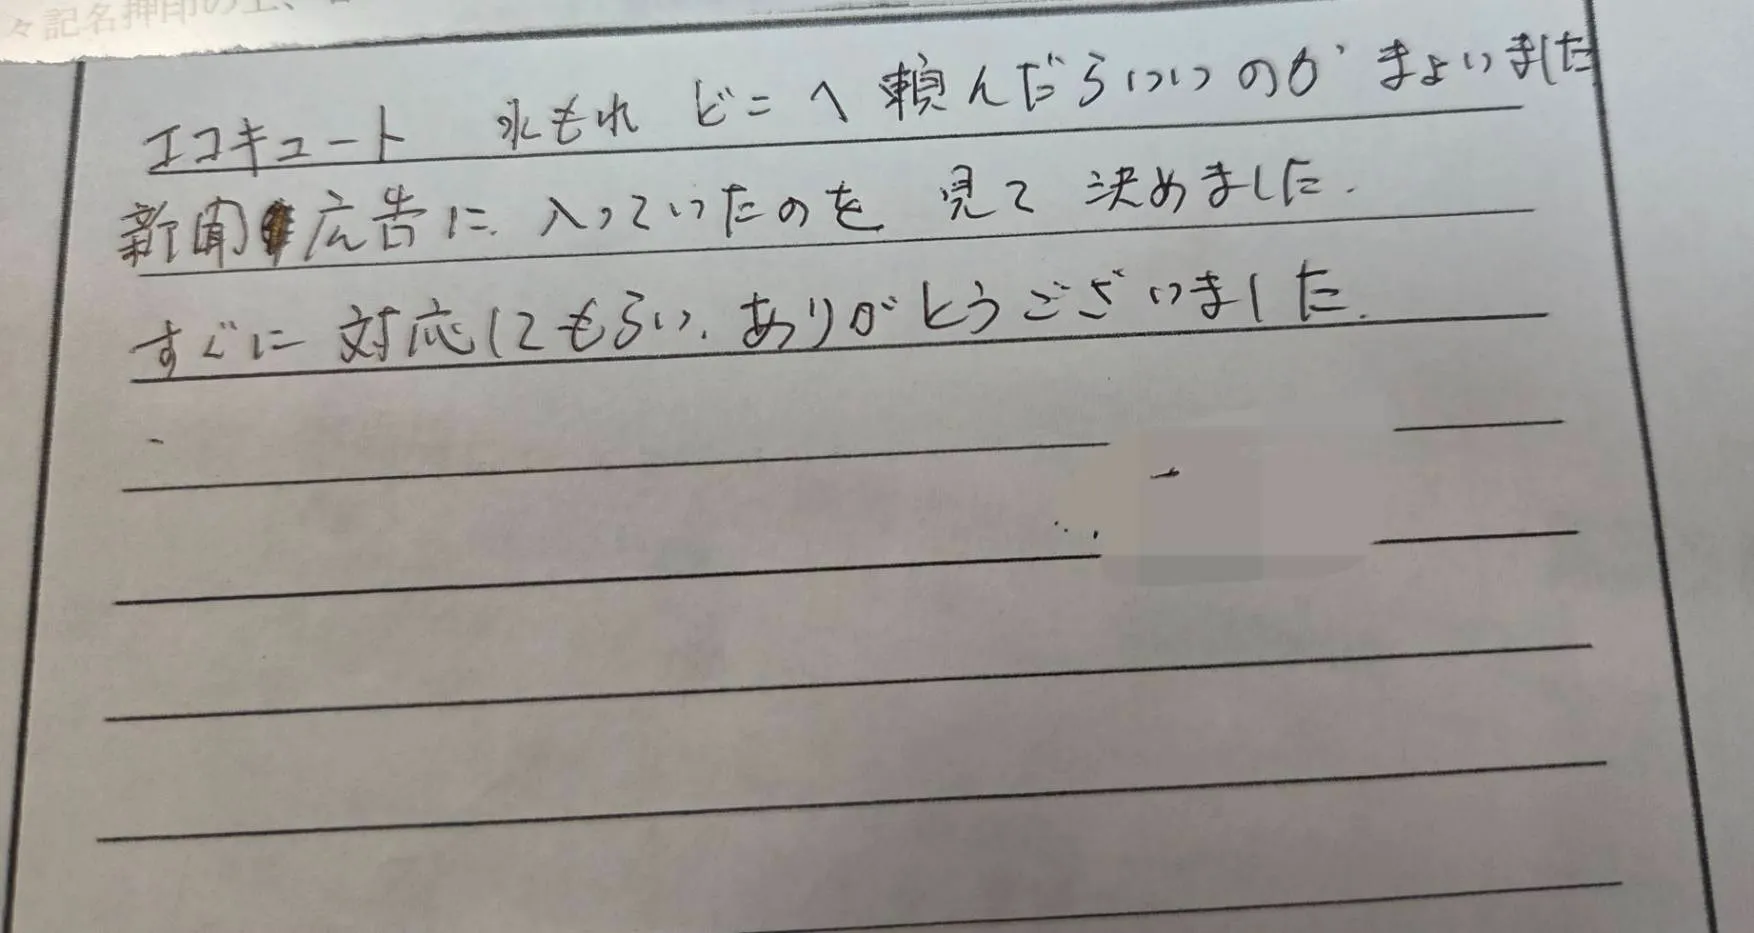 々記名押印の上、
エコキュート 水もれ どこへ頼んだらいいのか まよいました
新聞広告に入っていたのを 見て 決めました.
すぐに 対応してもらい、ありがとうございました.